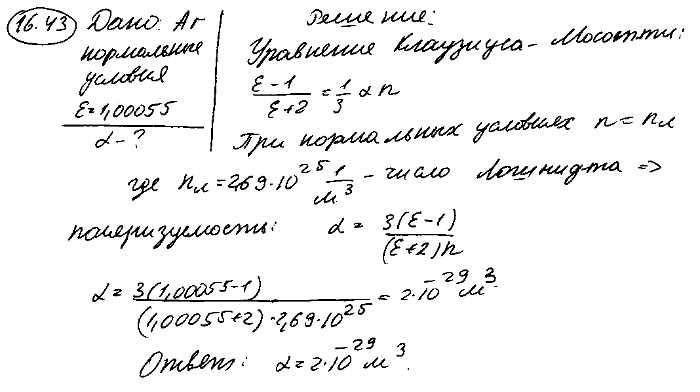 16.43 Дано: Ar
нормальные
условия
ε=1,00055
α-?
Решение:
Уравнение Клаузиуса-Мосотти:
(ε-1)/(ε+2) = 1/3 α n
При нормальных условиях n = nл
где nл=2,69·10^25 1/м^3 - число Лошмидта =>
поляризуемость: α = 3(ε-1)/((ε+2)n)
α = 3(1,00055-1)/((1,00055+2)·2,69·10^25) = 2·10^-29 м^3
Ответ: α=2·10^-29 м^3.